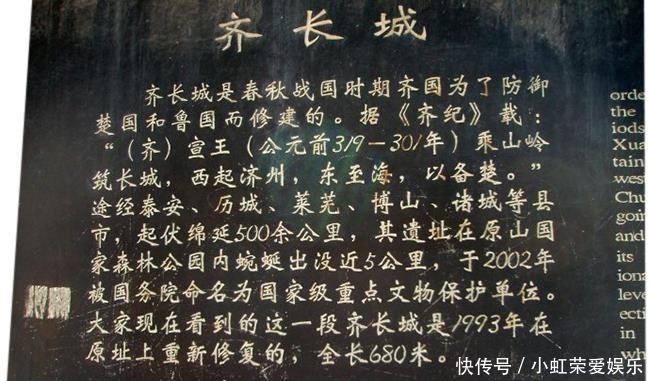 齐长城
齐长城是春秋战国时期齐国为了防御
楚国和鲁国而修建的。据《齐纪》载：
“（齐）宣王（公元前319－301年）乘山岭
筑长城，西起济州，东至海，以各楚。”
途经泰安、历城、莱芜、博山、诸城等县
市，起伏绵延500余公里，其遗址在原山国
家森林公园内蜿蜒出没近5公里，于2002年
被国务院命名为国家级重点文物保护单位。
大家现在看到的这一段齐长城是1993年在
原址上重新修复的，全长680米。
orde
the
iods
Xua
tain
west
Chu
goin
and
its
iona
leve
ecti
in
wh
快传号／小虹荣爱娱乐